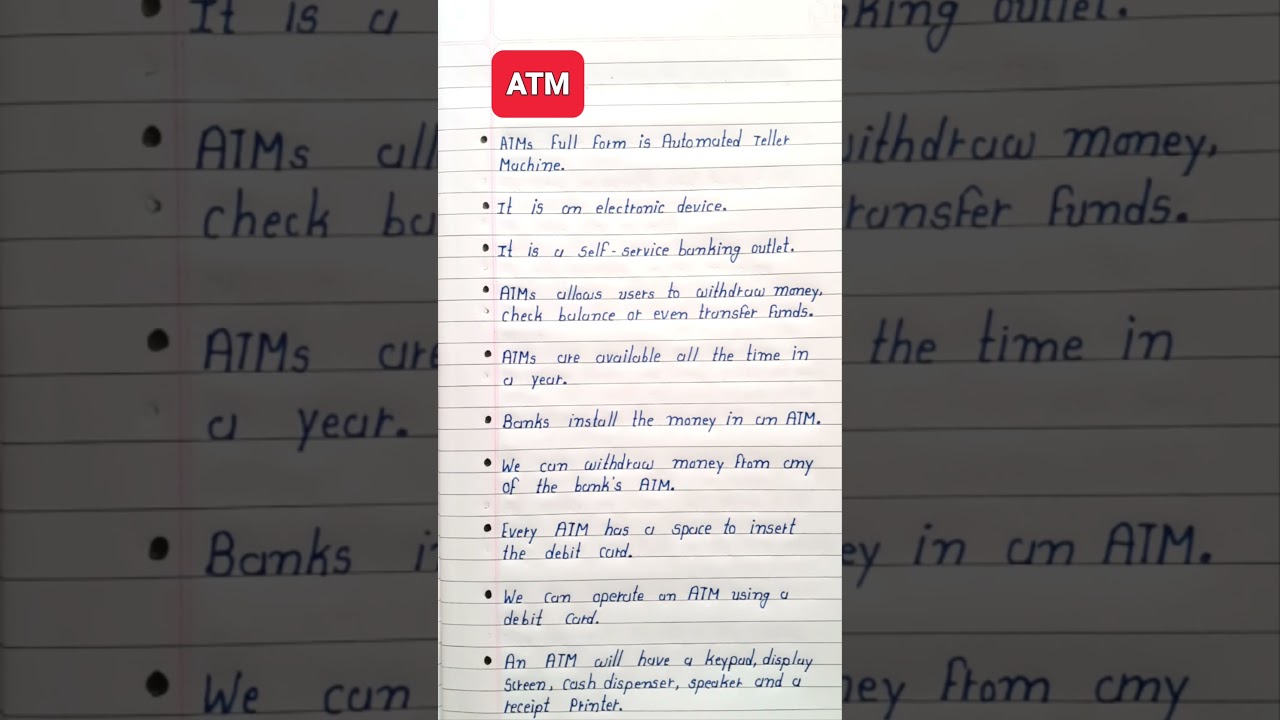 ATM
ATMs Full Form is Automated Teller
Machine.
It is an electronic device.
It is a self-service banking outlet.
ATMs allows users to withdraw money,
check balance or even transfer funds.
ATMs are available all the time in
a year.
Banks install the money in an ATM.
We can withdraw money from any
of the bank's ATM.
Every ATM has a space to insert
the debit card.
We can operate an ATM using a
debit card.
An ATM will have a keypad, display
screen, cash dispenser, speaker and a
receipt Printer.